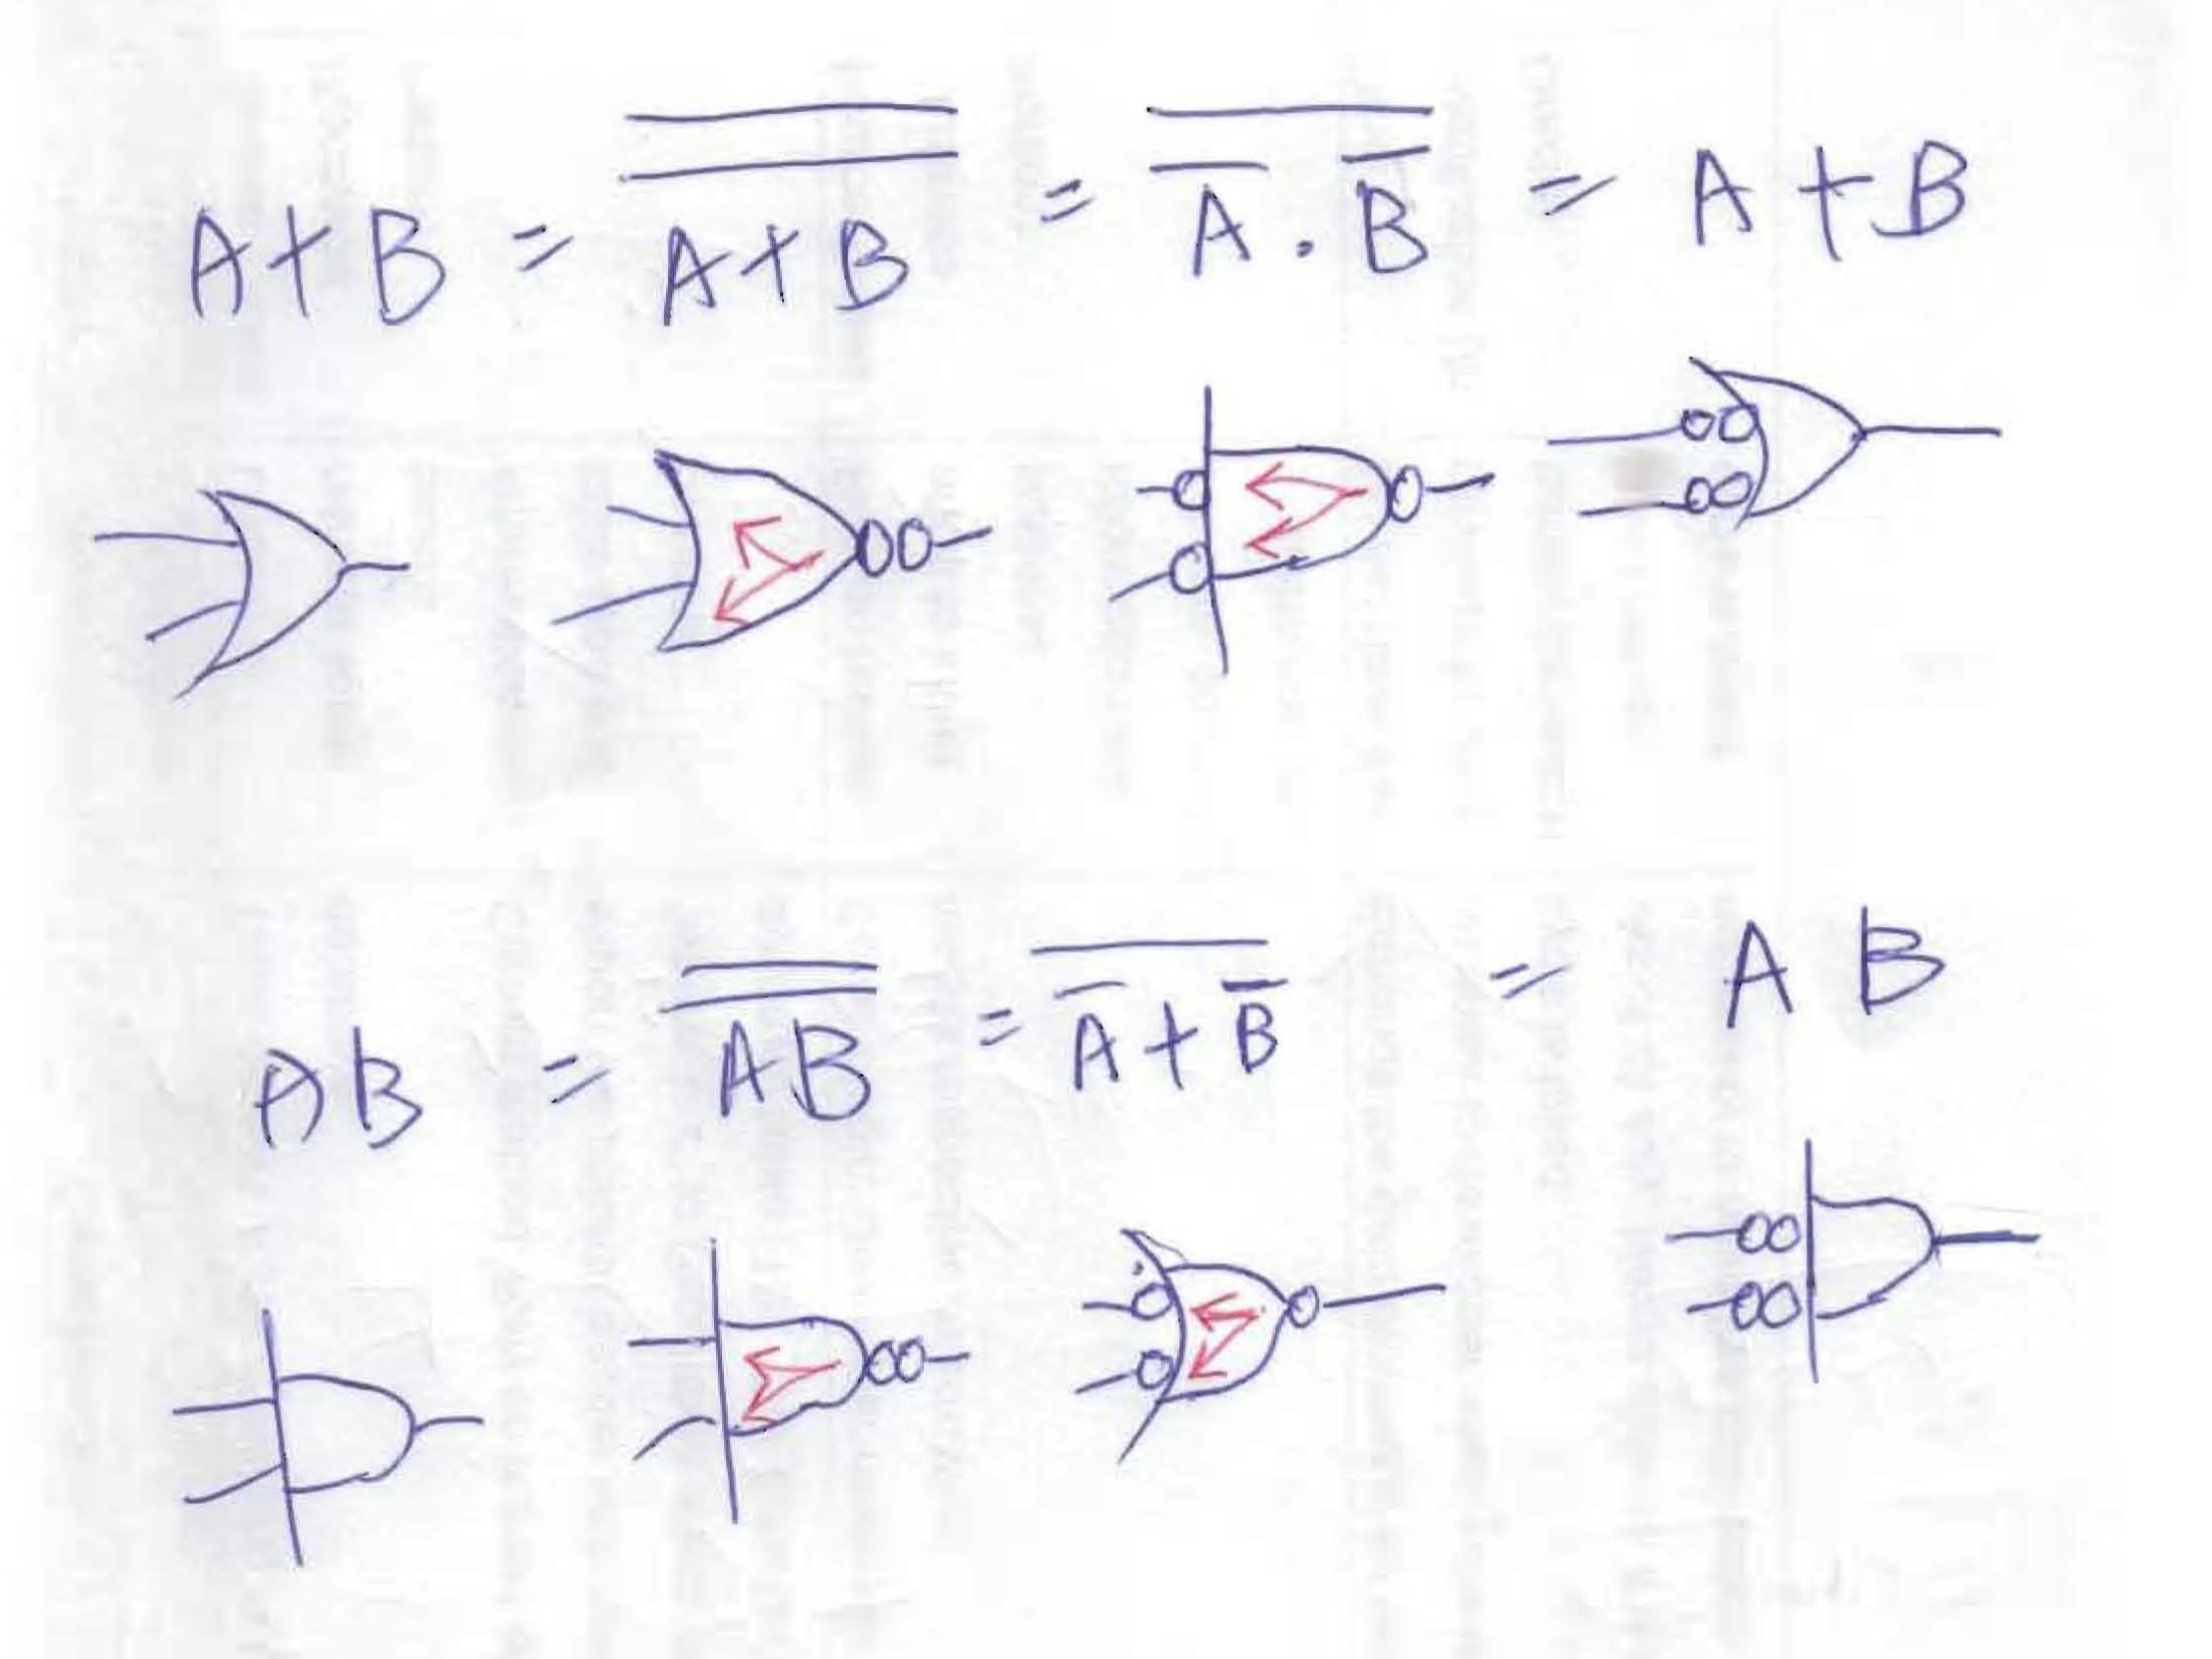 A+B = \overline{\overline{A+B}} = \overline{\overline{A} . \overline{B}} = A+B
AB = \overline{\overline{AB}} = \overline{\overline{A}+\overline{B}} = A B